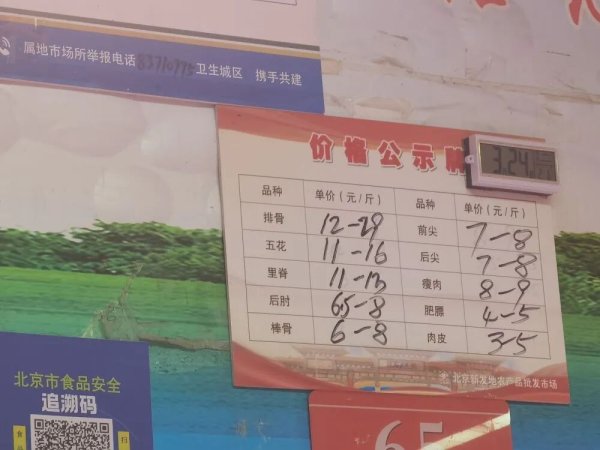 属地市场所举报电话83710775卫生城区 携手共建
价格公示牌
品种 单价（元/斤） 品种 单价（元/斤）
排骨 12-29 前尖 7-8
五花 11-16 后尖 7-8
里脊 11-13 瘦肉 8-9
后肘 6.5-8 肥膘 4-5
棒骨 6-8 肉皮 3-5
北京新发地农产品批发市场
北京市食品安全
追溯码
65